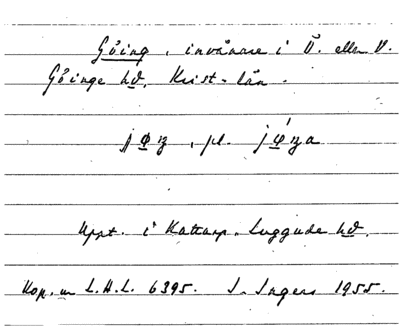 Göing, invånare i Ö. eller V.
Göinge hd, Krist-län.
jøŋ, pl. jǿŋa
Uppt. i Kattarp, Luggude hd.
Kop. ur L.H.L. 6395. I. Ingers 1955.